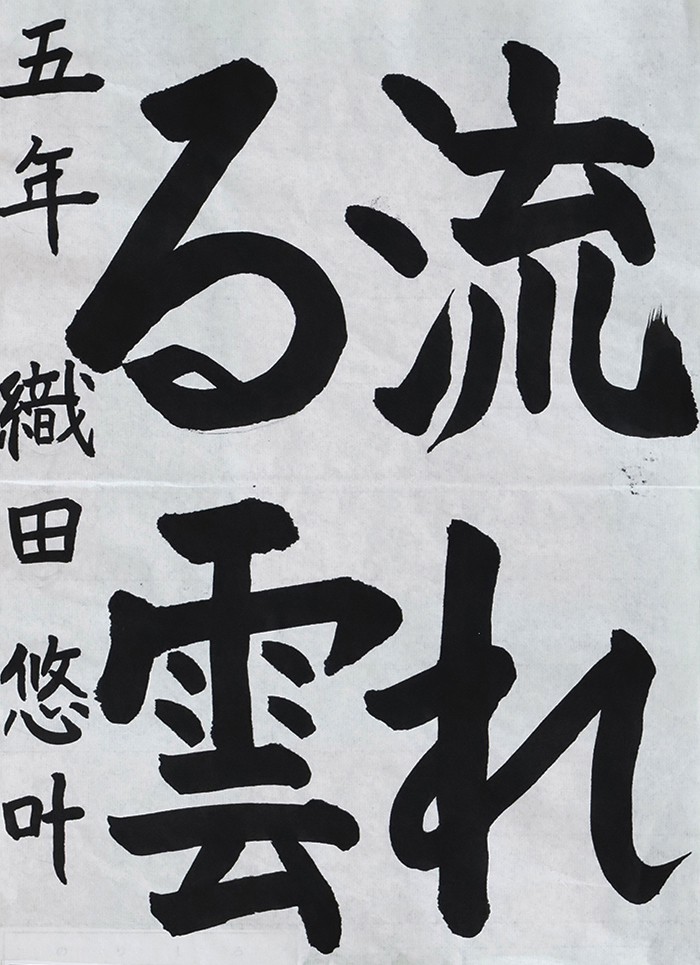 流れ
る雲
五年 織田悠叶